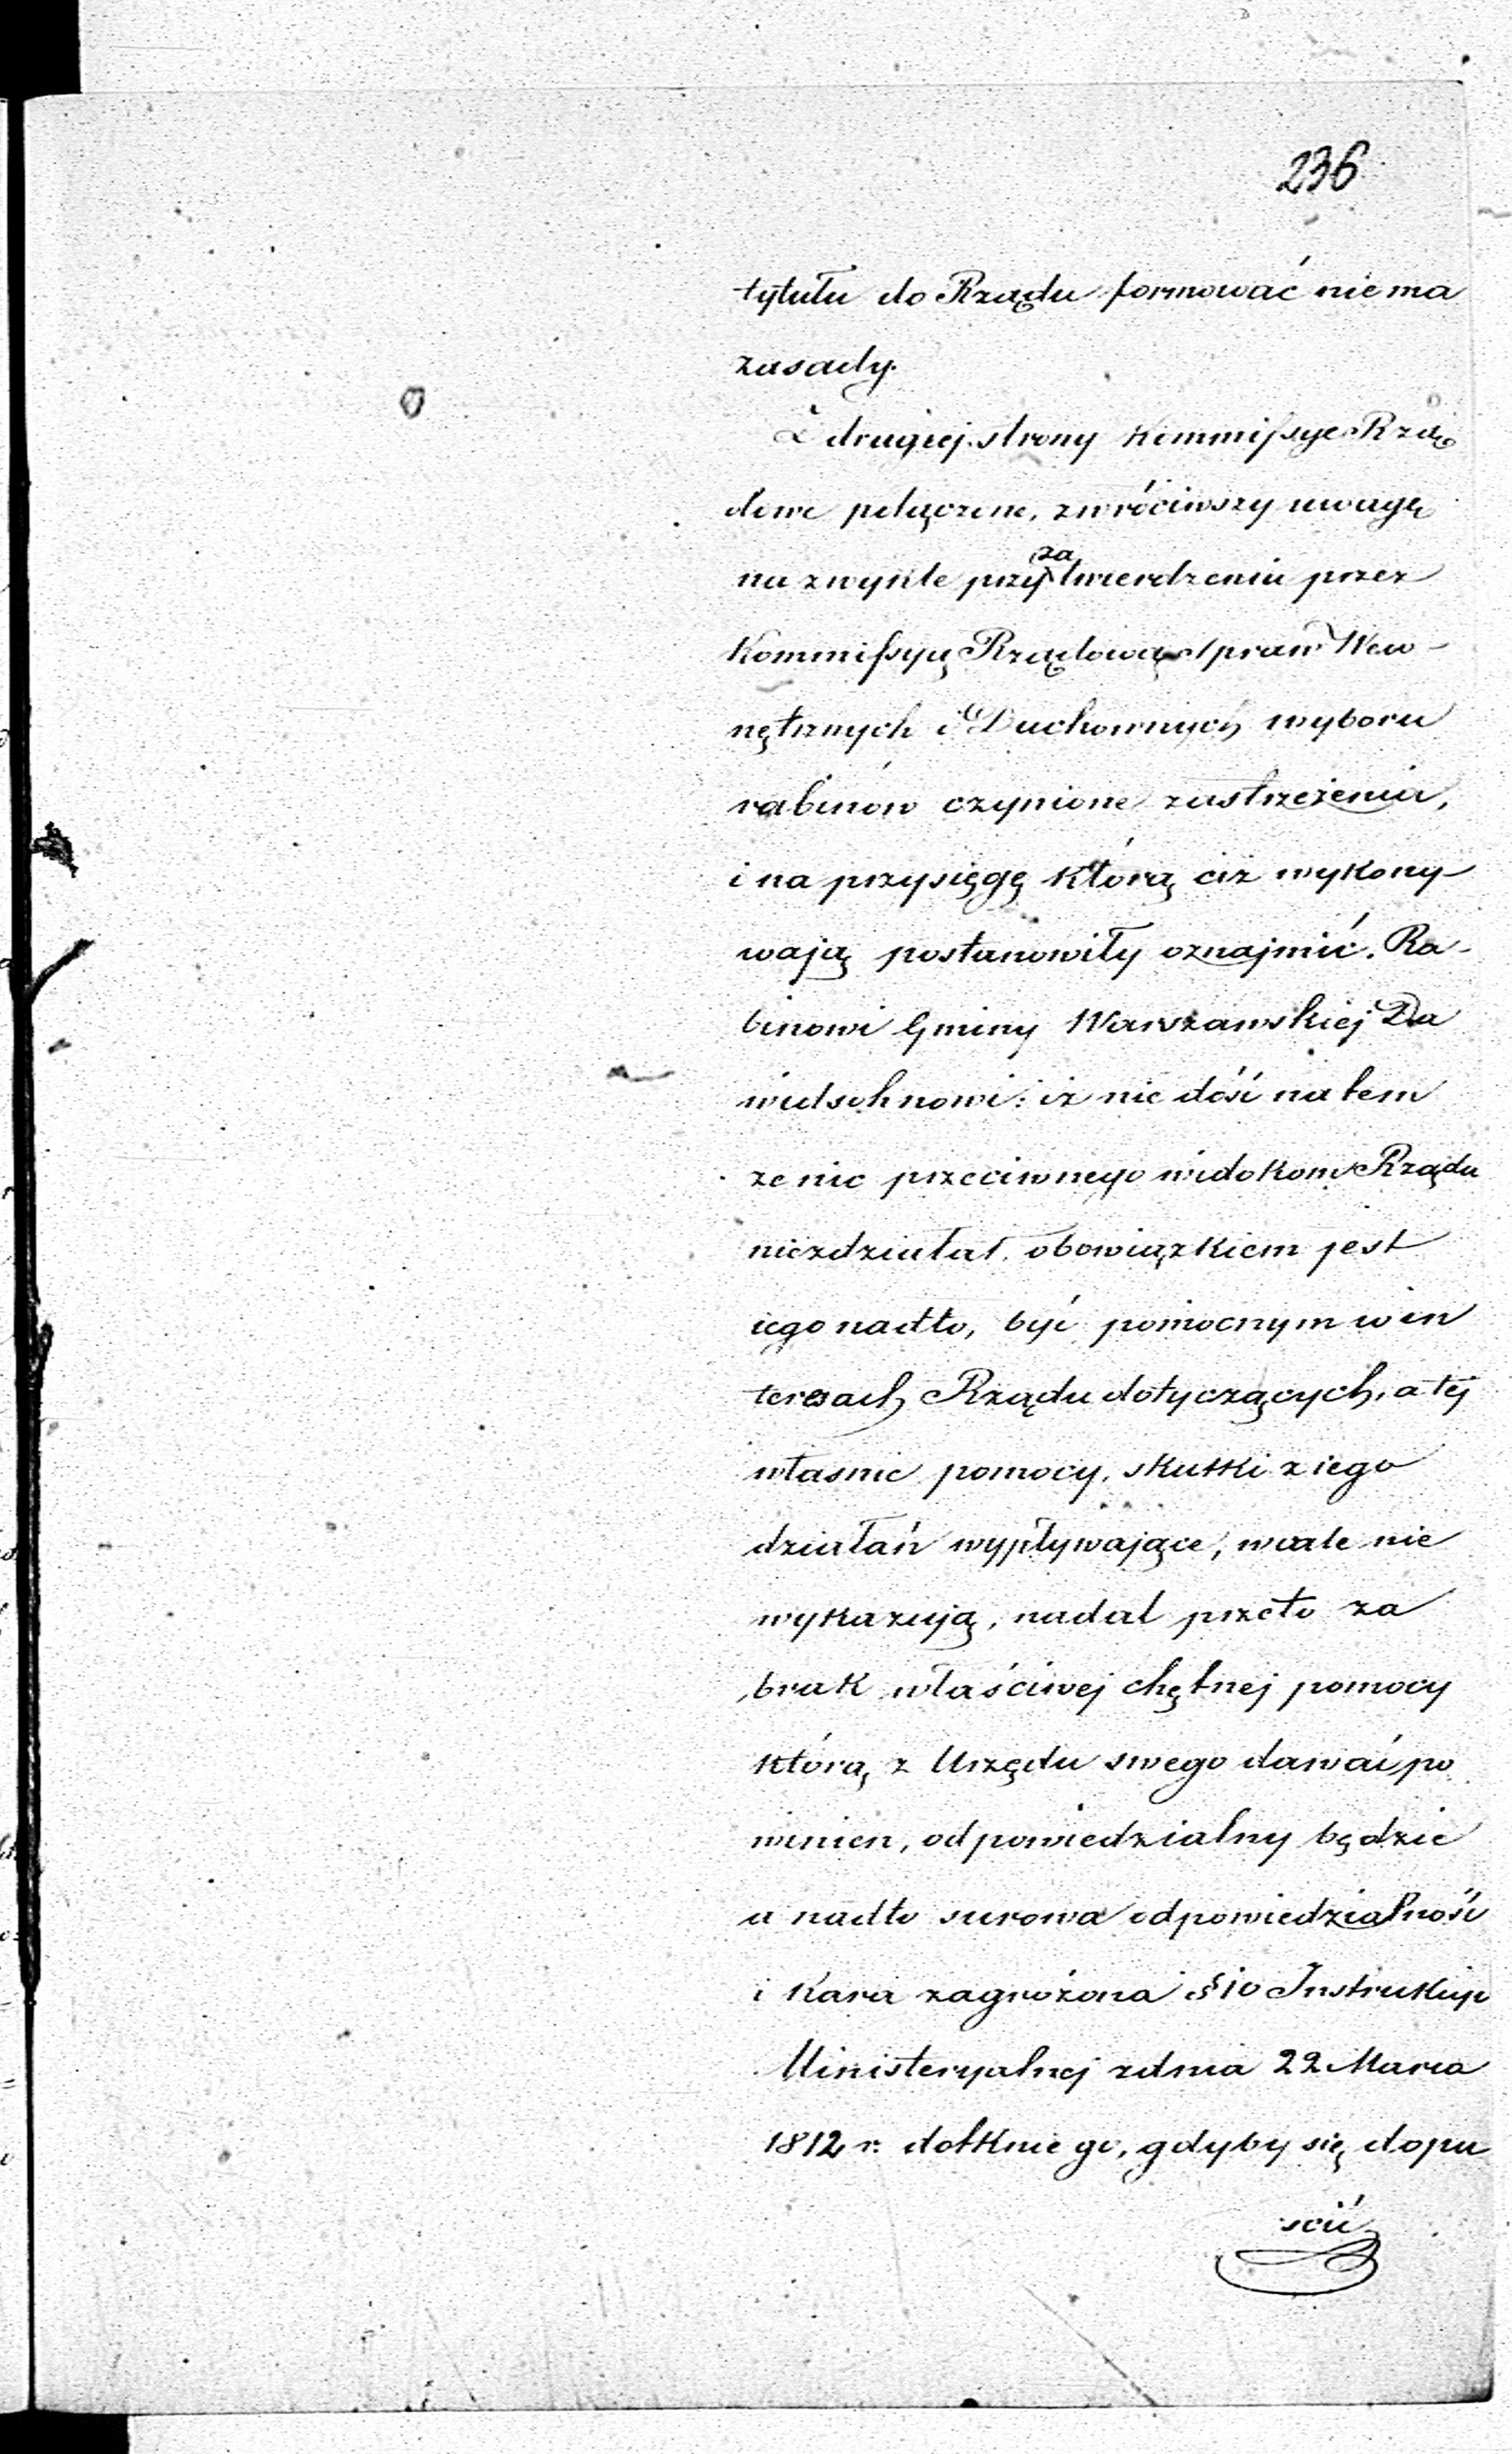 236
tytułu do Rządu formować nie ma
zasady.
Z drugiej strony Kommissye Rzą
dowe połączone, zwróciwszy uwagę
na zwykle przy zatwierdzeniu przez
Kommissyą Rządową Spraw Wew-
nętrznych i Duchownych wyboru
rabinów czynione zastrzeżenia,
i na przysięgę którą ciż wykony-
wają postanowiły oznajmić. Ra-
binowi Gminy Warszawskiej Da
widsohnowi: iż nie dość na tem
że nic przeciwnego widokom Rządu
niezdziałał, obowiązkiem jest
iego nadto, być pomocnym w in
teresach Rządu dotyczących, a tej
własnie pomocy, skutki z iego
działań wypływające, wcale nie
wykazują, nadal przeto za
brak właściwej chętnej pomocy
którą z Urzędu swego dawać po
winien, odpowiedzialny będzie
a nadto surowa odpowiedzialność
i Kara zagrożona § 10 Instrukcyi
Ministeryalnej z dnia 22 Marca
1812 r. dotknie go, gdyby się dopu
scić